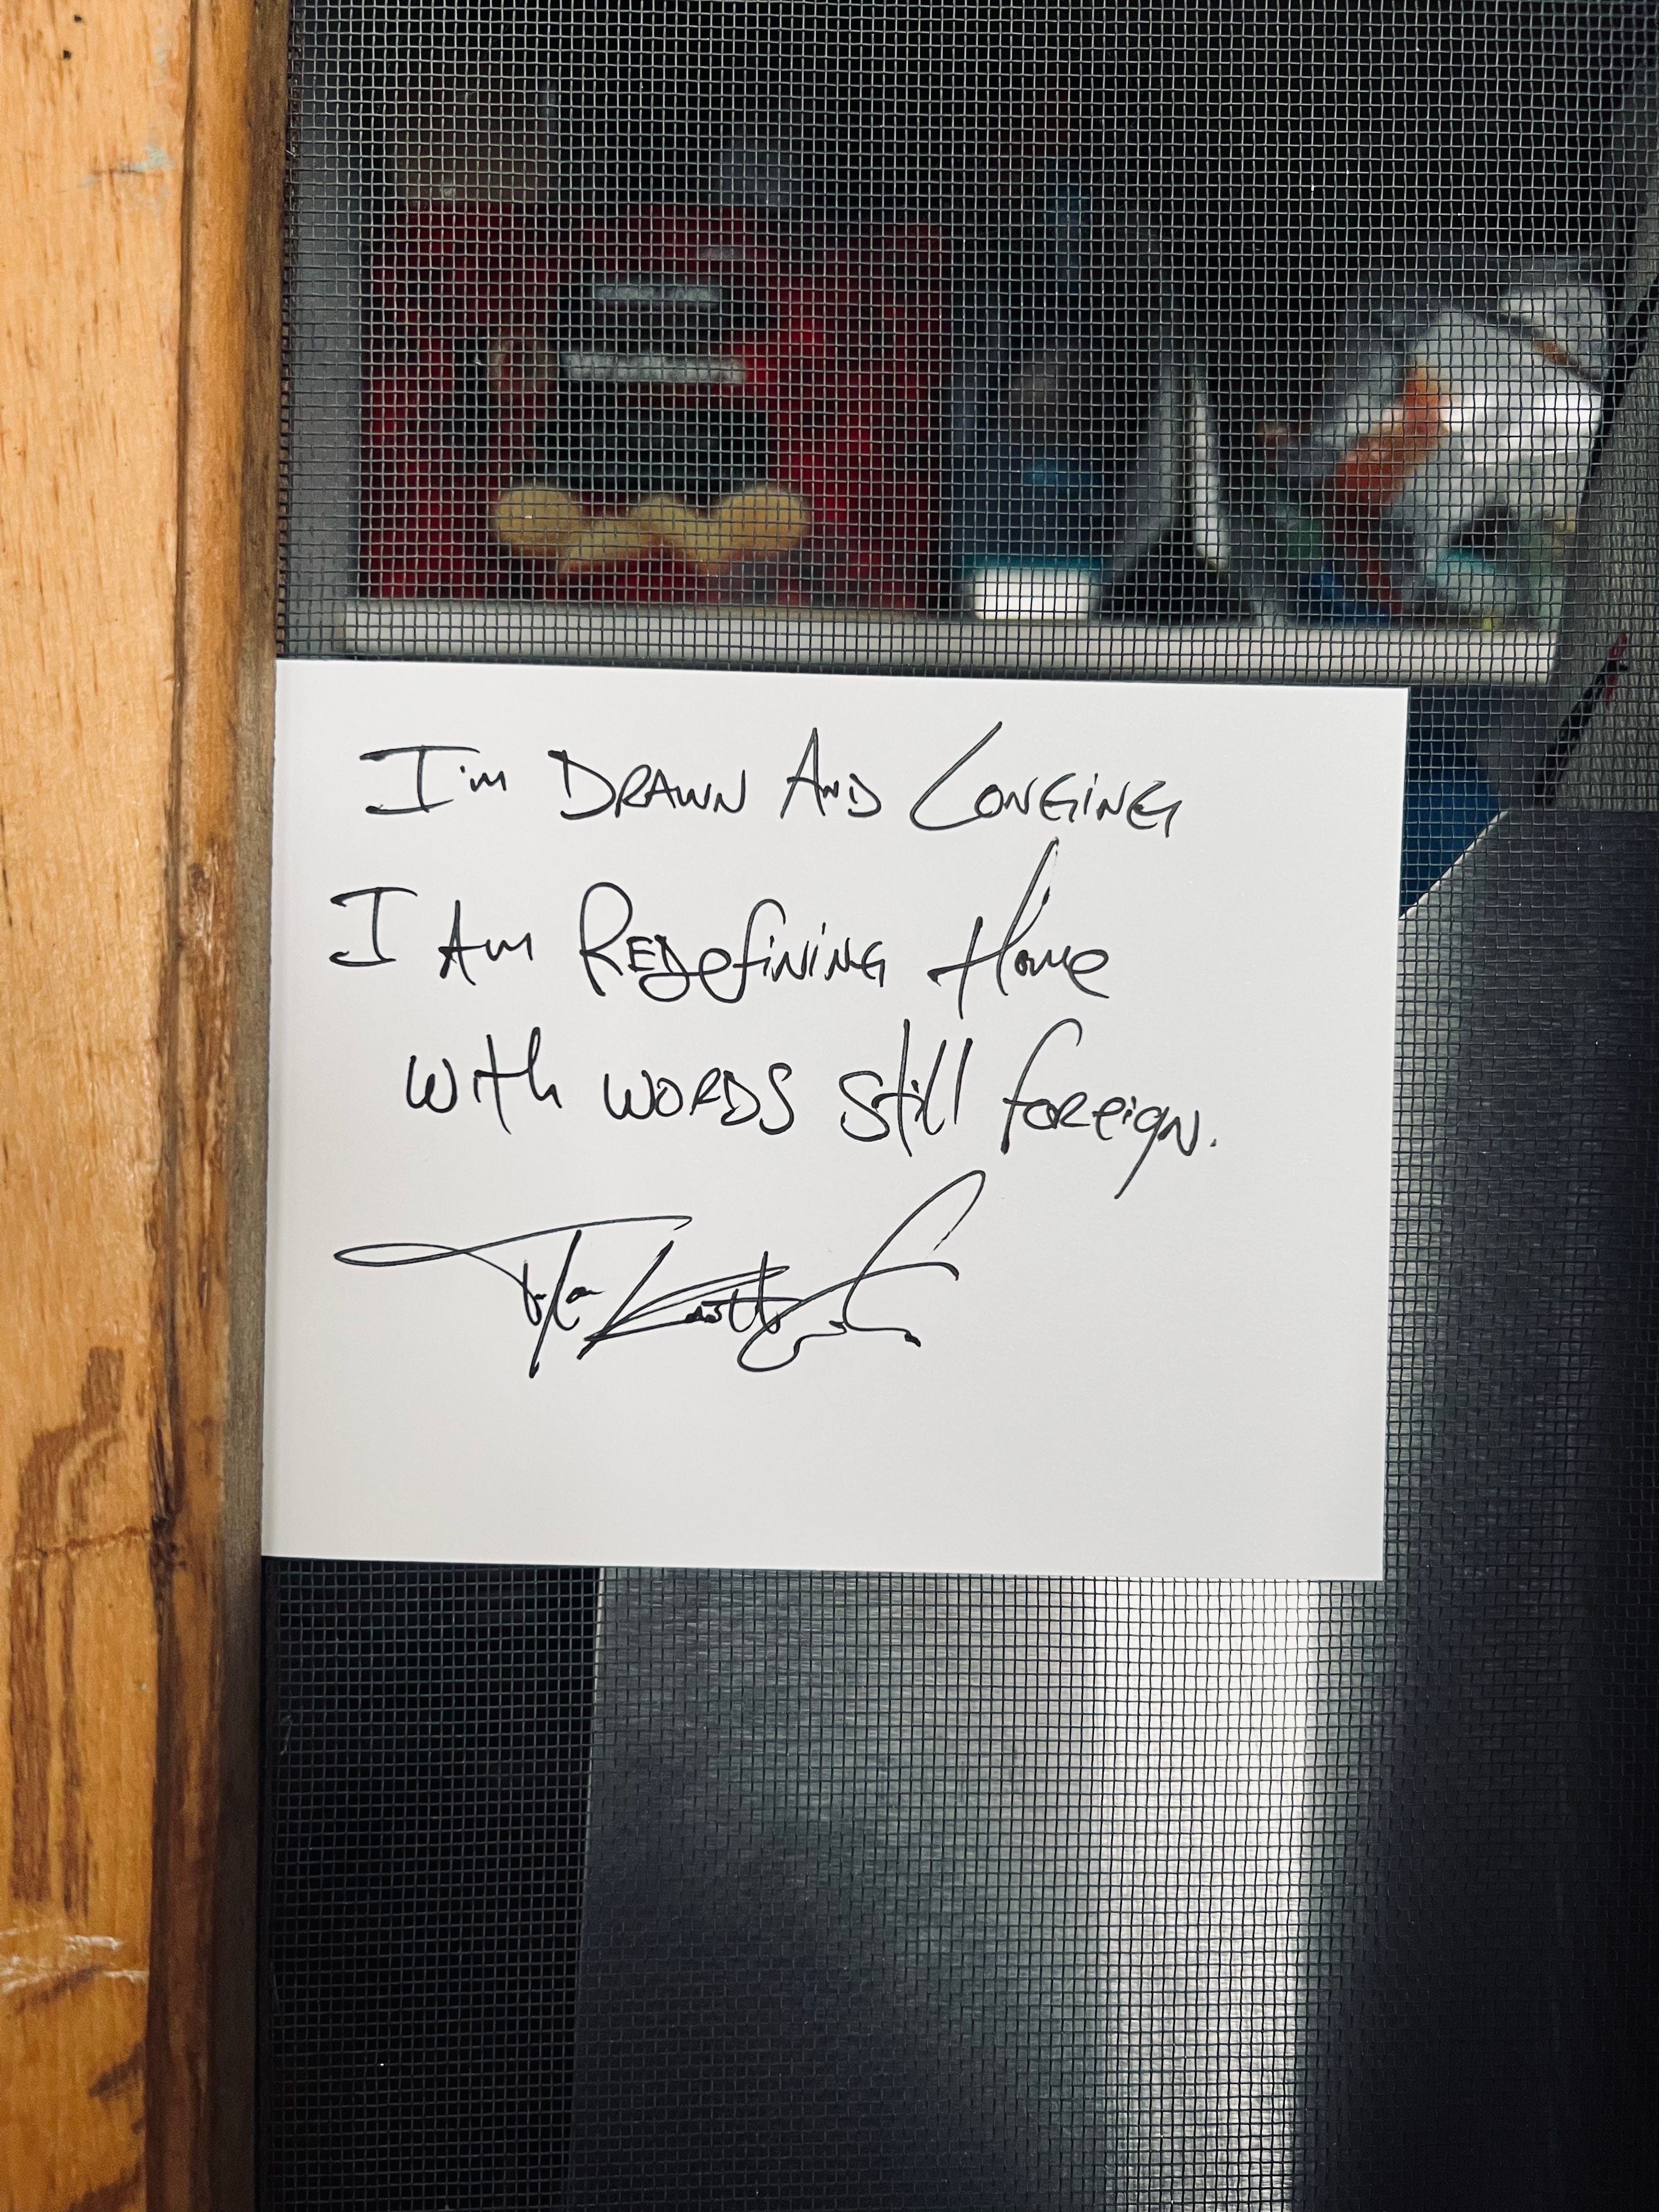 I'm DRAWN AND LONGING
I Am REDefiNiNG Home
with WORDS Still foReigN.